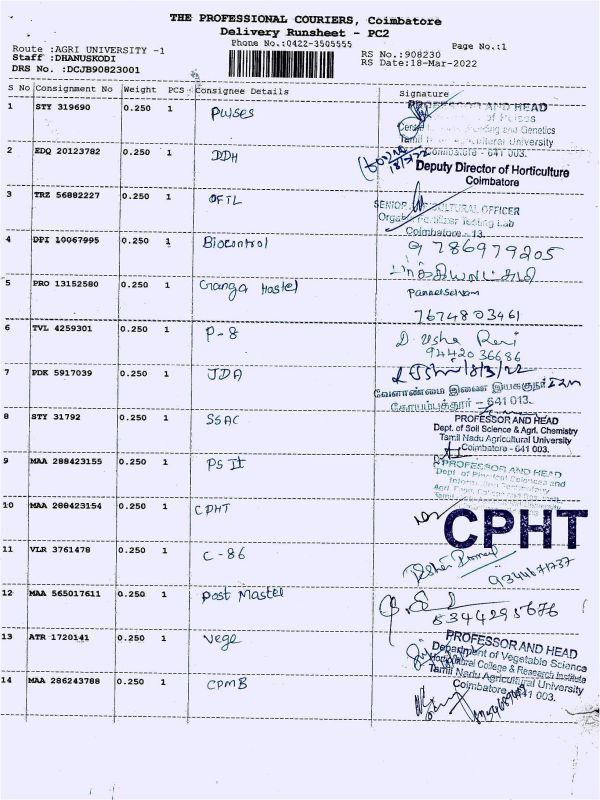 THE PROFESSIONAL COURIERS, Coimbatore
Delivery Runsheet - PC2
Phone No.:0422-3505555
Page No.:1
Route :AGRI UNIVERSITY -1
RS No.:908230
Staff :DHANUSKODI
RS Date:18-Mar-2022
DRS No. :DCJB90823001
S No Consignment No Weight PCS Consignee Details Signature
1 STY 319690 0.250 1 Pulses
PROFESSOR AND HEAD
of Pulses
Centre Breeding and Genetics
Tamil Nadu Agricultural University
Coimbatore - 641 003.
2 EDQ 20123782 0.250 1 DDH
18/3/22
Deputy Director of Horticulture
Coimbatore
3 TRZ 56882227 0.250 1 OFTL
SENIOR AGRICULTURAL OFFICER
Organic Fertilizer Testing Lab
Coimbatore - 13.
4 DPI 10067995 0.250 1 Biocontrol
9786979205
5 PRO 13152580 0.250 1 Ganga Hostel
Panneelselvam
7674803461
6 TVL 4259301 0.250 1 P-8
D. Usha Rani
9442036686
7 PDK 5917039 0.250 1 JDA
18/3/22
வேளாண்மை இணை இயக்குநர்
கோயம்புத்தூர் - 641 013.
8 STY 31792 0.250 1 SSAC
PROFESSOR AND HEAD
Dept. of Soil Science & Agri. Chemistry
Tamil Nadu Agricultural University
Coimbatore - 641 003.
9 MAA 288423155 0.250 1 PS IT
PROFESSOR AND HEAD
Dept. of Physical Sciences and
Information Technology
10 MAA 288423154 0.250 1 CPHT
CPHT
11 VLR 3761478 0.250 1 C-86
9344671737
12 MAA 565017611 0.250 1 Post Master
6344295676
13 ATR 1720141 0.250 1 Vege
PROFESSOR AND HEAD
Department of Vegetable Science
Horticultural College & Research Institute
Tamil Nadu Agricultural University
Coimbatore - 641 003.
14 MAA 286243788 0.250 1 CPMB